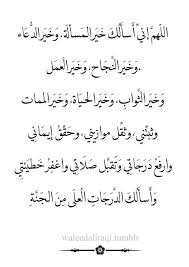 اللهم إنيّ أسألك خير المسألة، وخير الدُّعاء
،وخير النَّجاح، وخير العمل
وخير الثَّواب، وخير الحياة، وخير الممات
وثبِّتني، وثقِّل موازيني، وحقِّق إيماني
وارفع درجاتي، وتقبَّل صلاتي واغفر خطيئتي
وأسألك الدَّرجات العلى من الجنَّة
waleedaliraqi.tumblr